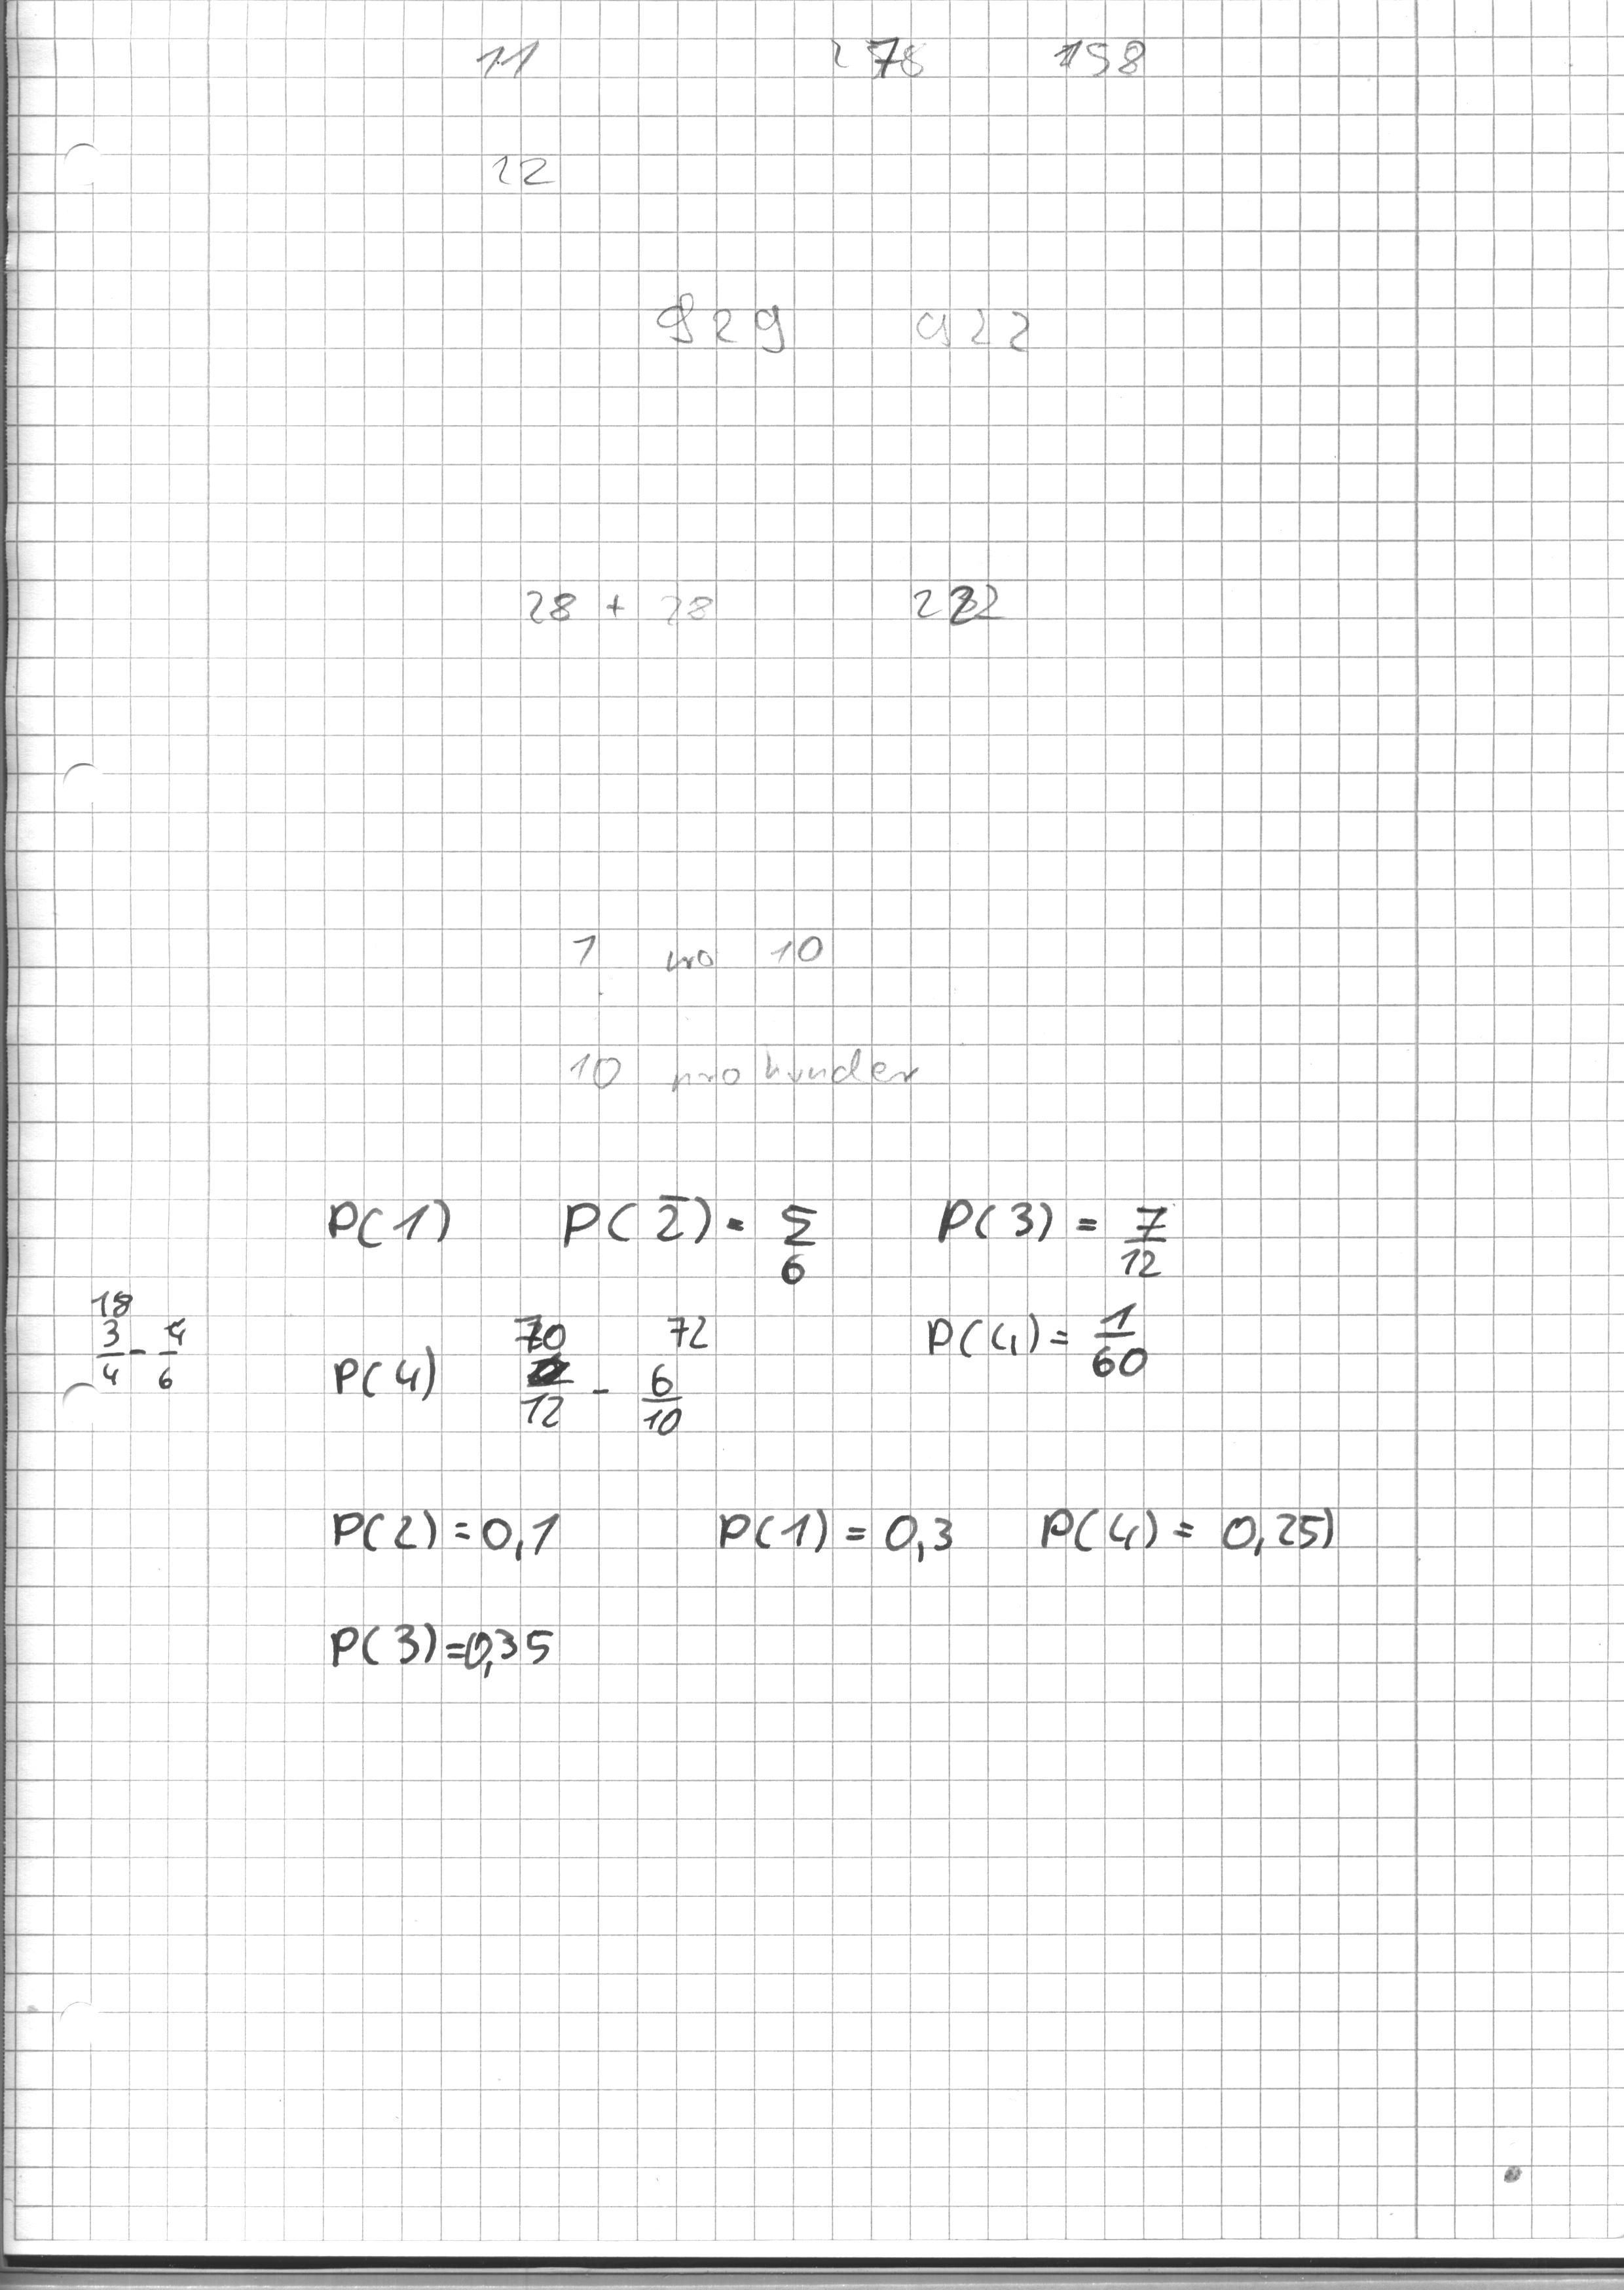 11 278 198
22
929 922
28 + 28 222
1 pro 10
10 pro hunder
P(1) P(2̄) = 5/6 P(3) = 7/12
18
3/4 - 4/6
70 72 P(4) = 1/60
P(4) /12 - 6/10
P(2) = 0,1 P(1) = 0,3 P(4) = 0,25)
P(3) = 0,35